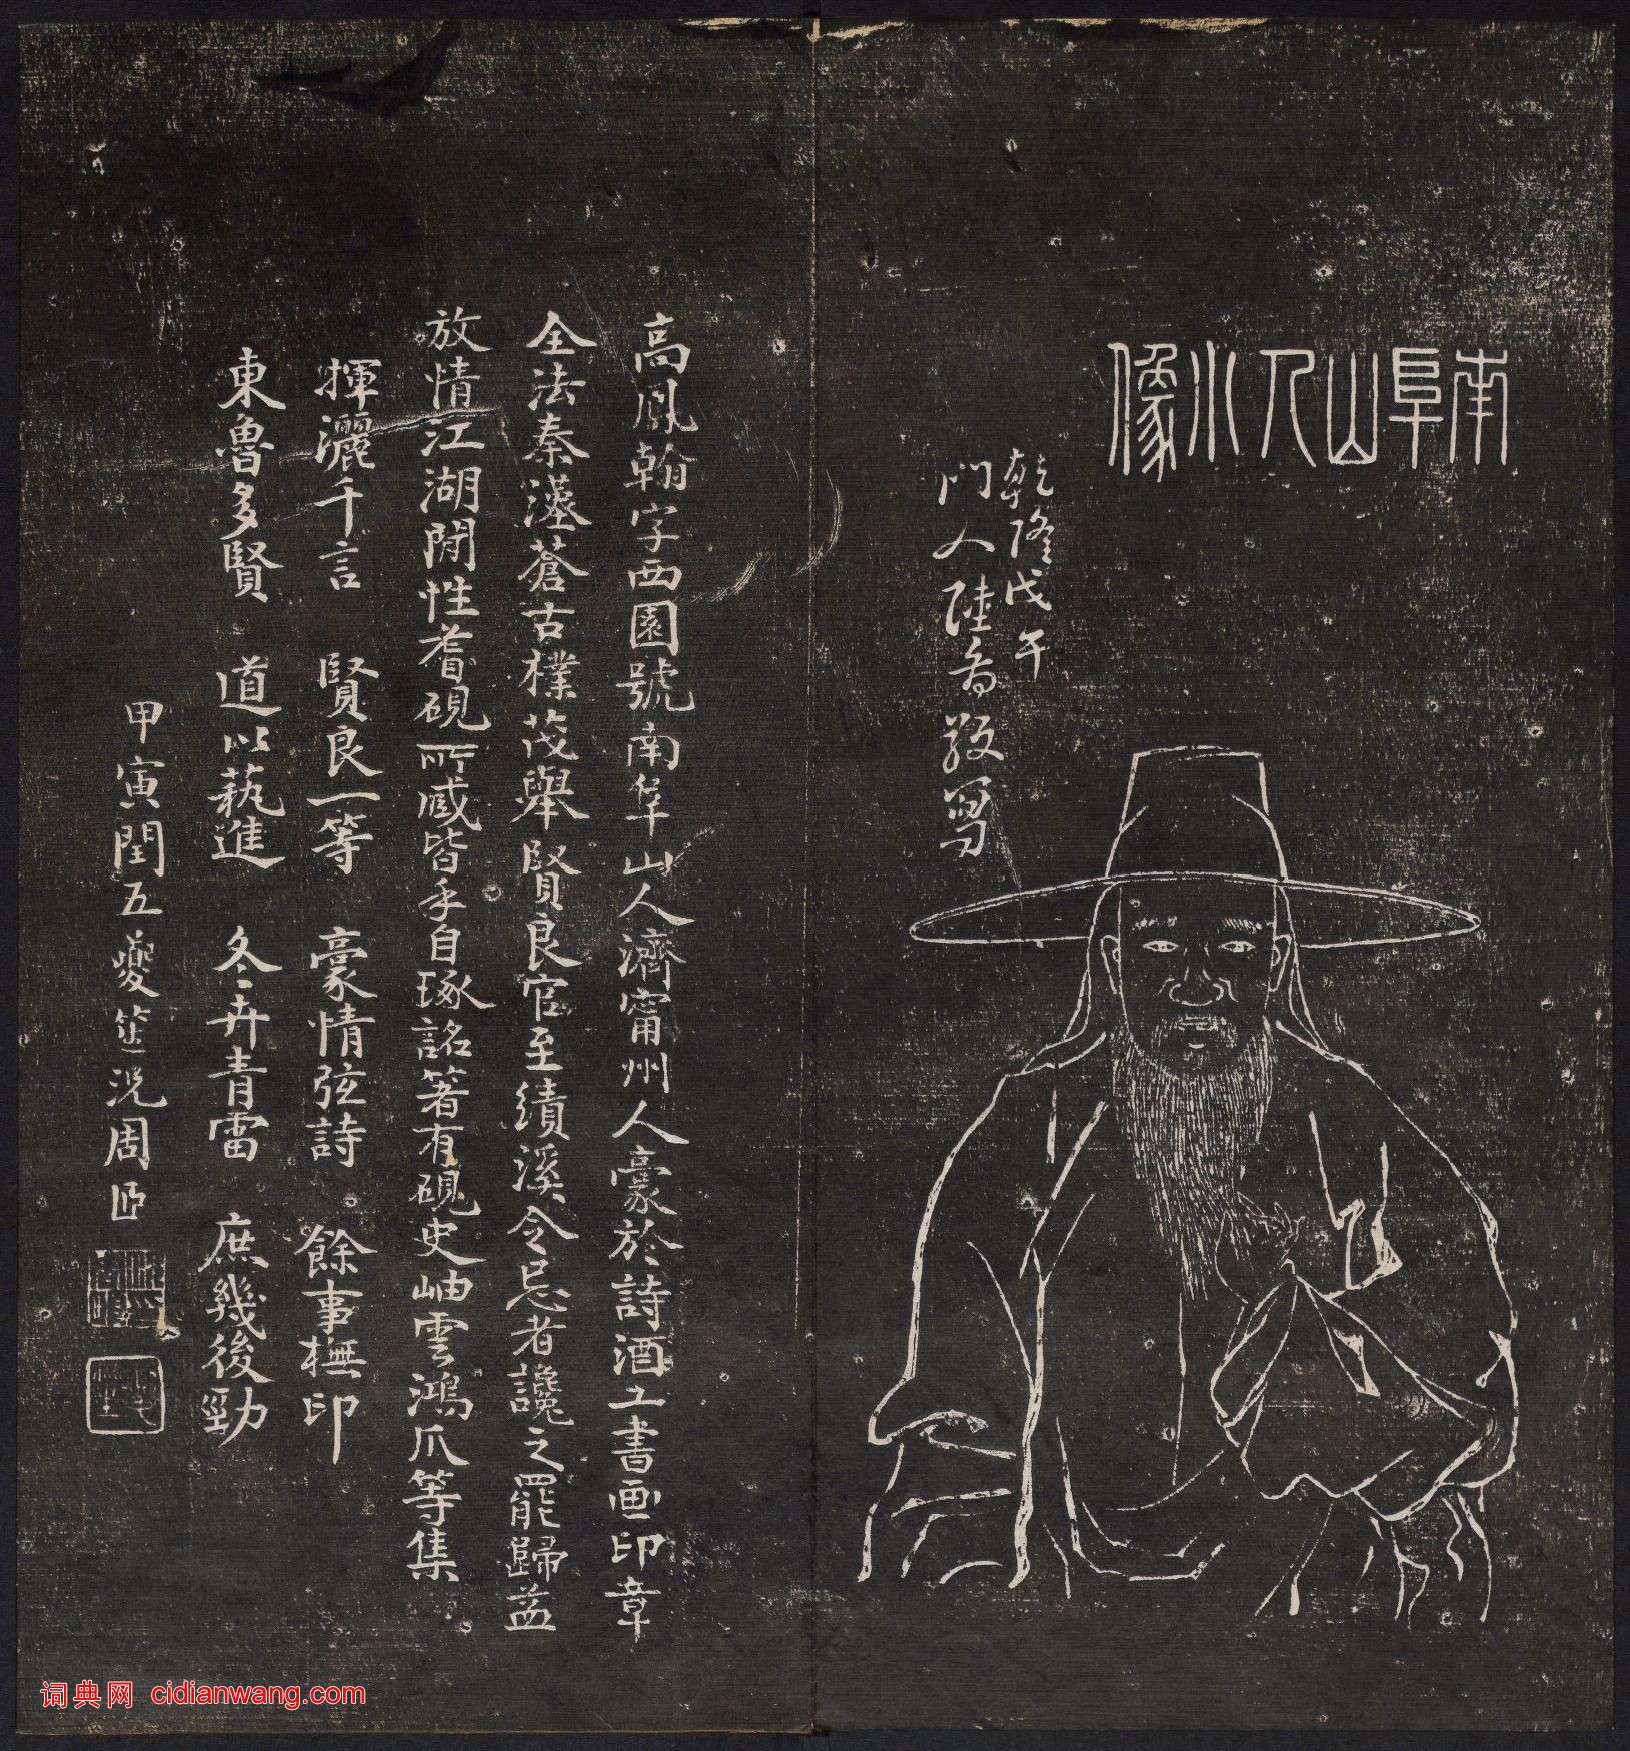 南阜山人小像
乾隆戊午
門人陸音敬寫
高鳳翰字西園號南阜山人濟甯州人豪於詩酒工書画印章
全法秦漢蒼古樸茂舉賢良官至績溪令忌者讒之罷歸益
放情江湖閒性耆硯所藏皆手自琢銘箸有硯史岫雲鴻爪等集
揮灑千言 賢良一等 豪情弦詩 餘事橅印
東魯多賢 道以藝進 冬卉青雷 庶幾後勁
甲寅閏五夔笙況周臣
词典网 cidianwang.com